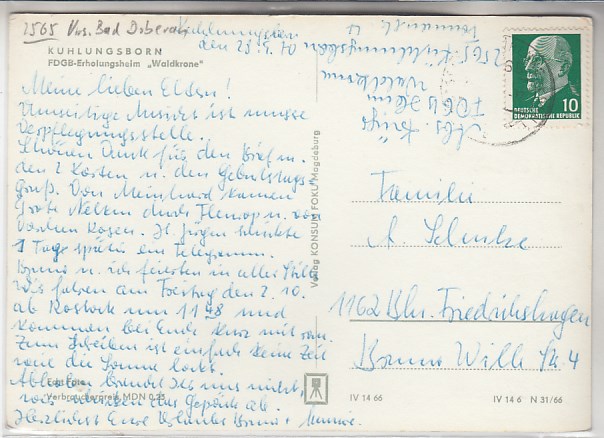 2565 Krs. Bad Doberan
Kühlungsborn
den 23.9.70
KÜHLUNGSBORN
FDGB-Erholungsheim „Waldkrone"
Meine lieben Eltern!
Umseitige Ansicht ist unsere
Verpflegungsstelle.
Schönen Dank für den Brief u.
den 2 Karten u. den Geburtstags-
gruß. Von Meinhard kamen
rote Nelken durch Fleurop u. von
Rosen. H. Jürgen schickte
1 Tag später ein Telegramm.
u. ich feierten in aller Stille
Wir fahren am Freitag den 2.10.
ab Rostock um 11 48 und
kommen bei Euch kurz mit ran.
Zum Schreiben ist einfach keine Zeit
weil die Sonne lockt.
Abholen braucht Ihr uns nicht,
wir das Gepäck ab.
Herzlichst Eure Urlauber u.
Echt Foto
Verbraucherpreis MDN 0,25
Verlag KONSUM FOKU Magdeburg
Abs.
FDGB Heim
Waldkrone
2565 Kühlungsborn
DEUTSCHE
DEMOKRATISCHE REPUBLIK
10
Familie
A.
1162 Bln. Friedrichshagen
Bruno Wille Str. 4
IV 14 66
IV 14 6 N 31/66